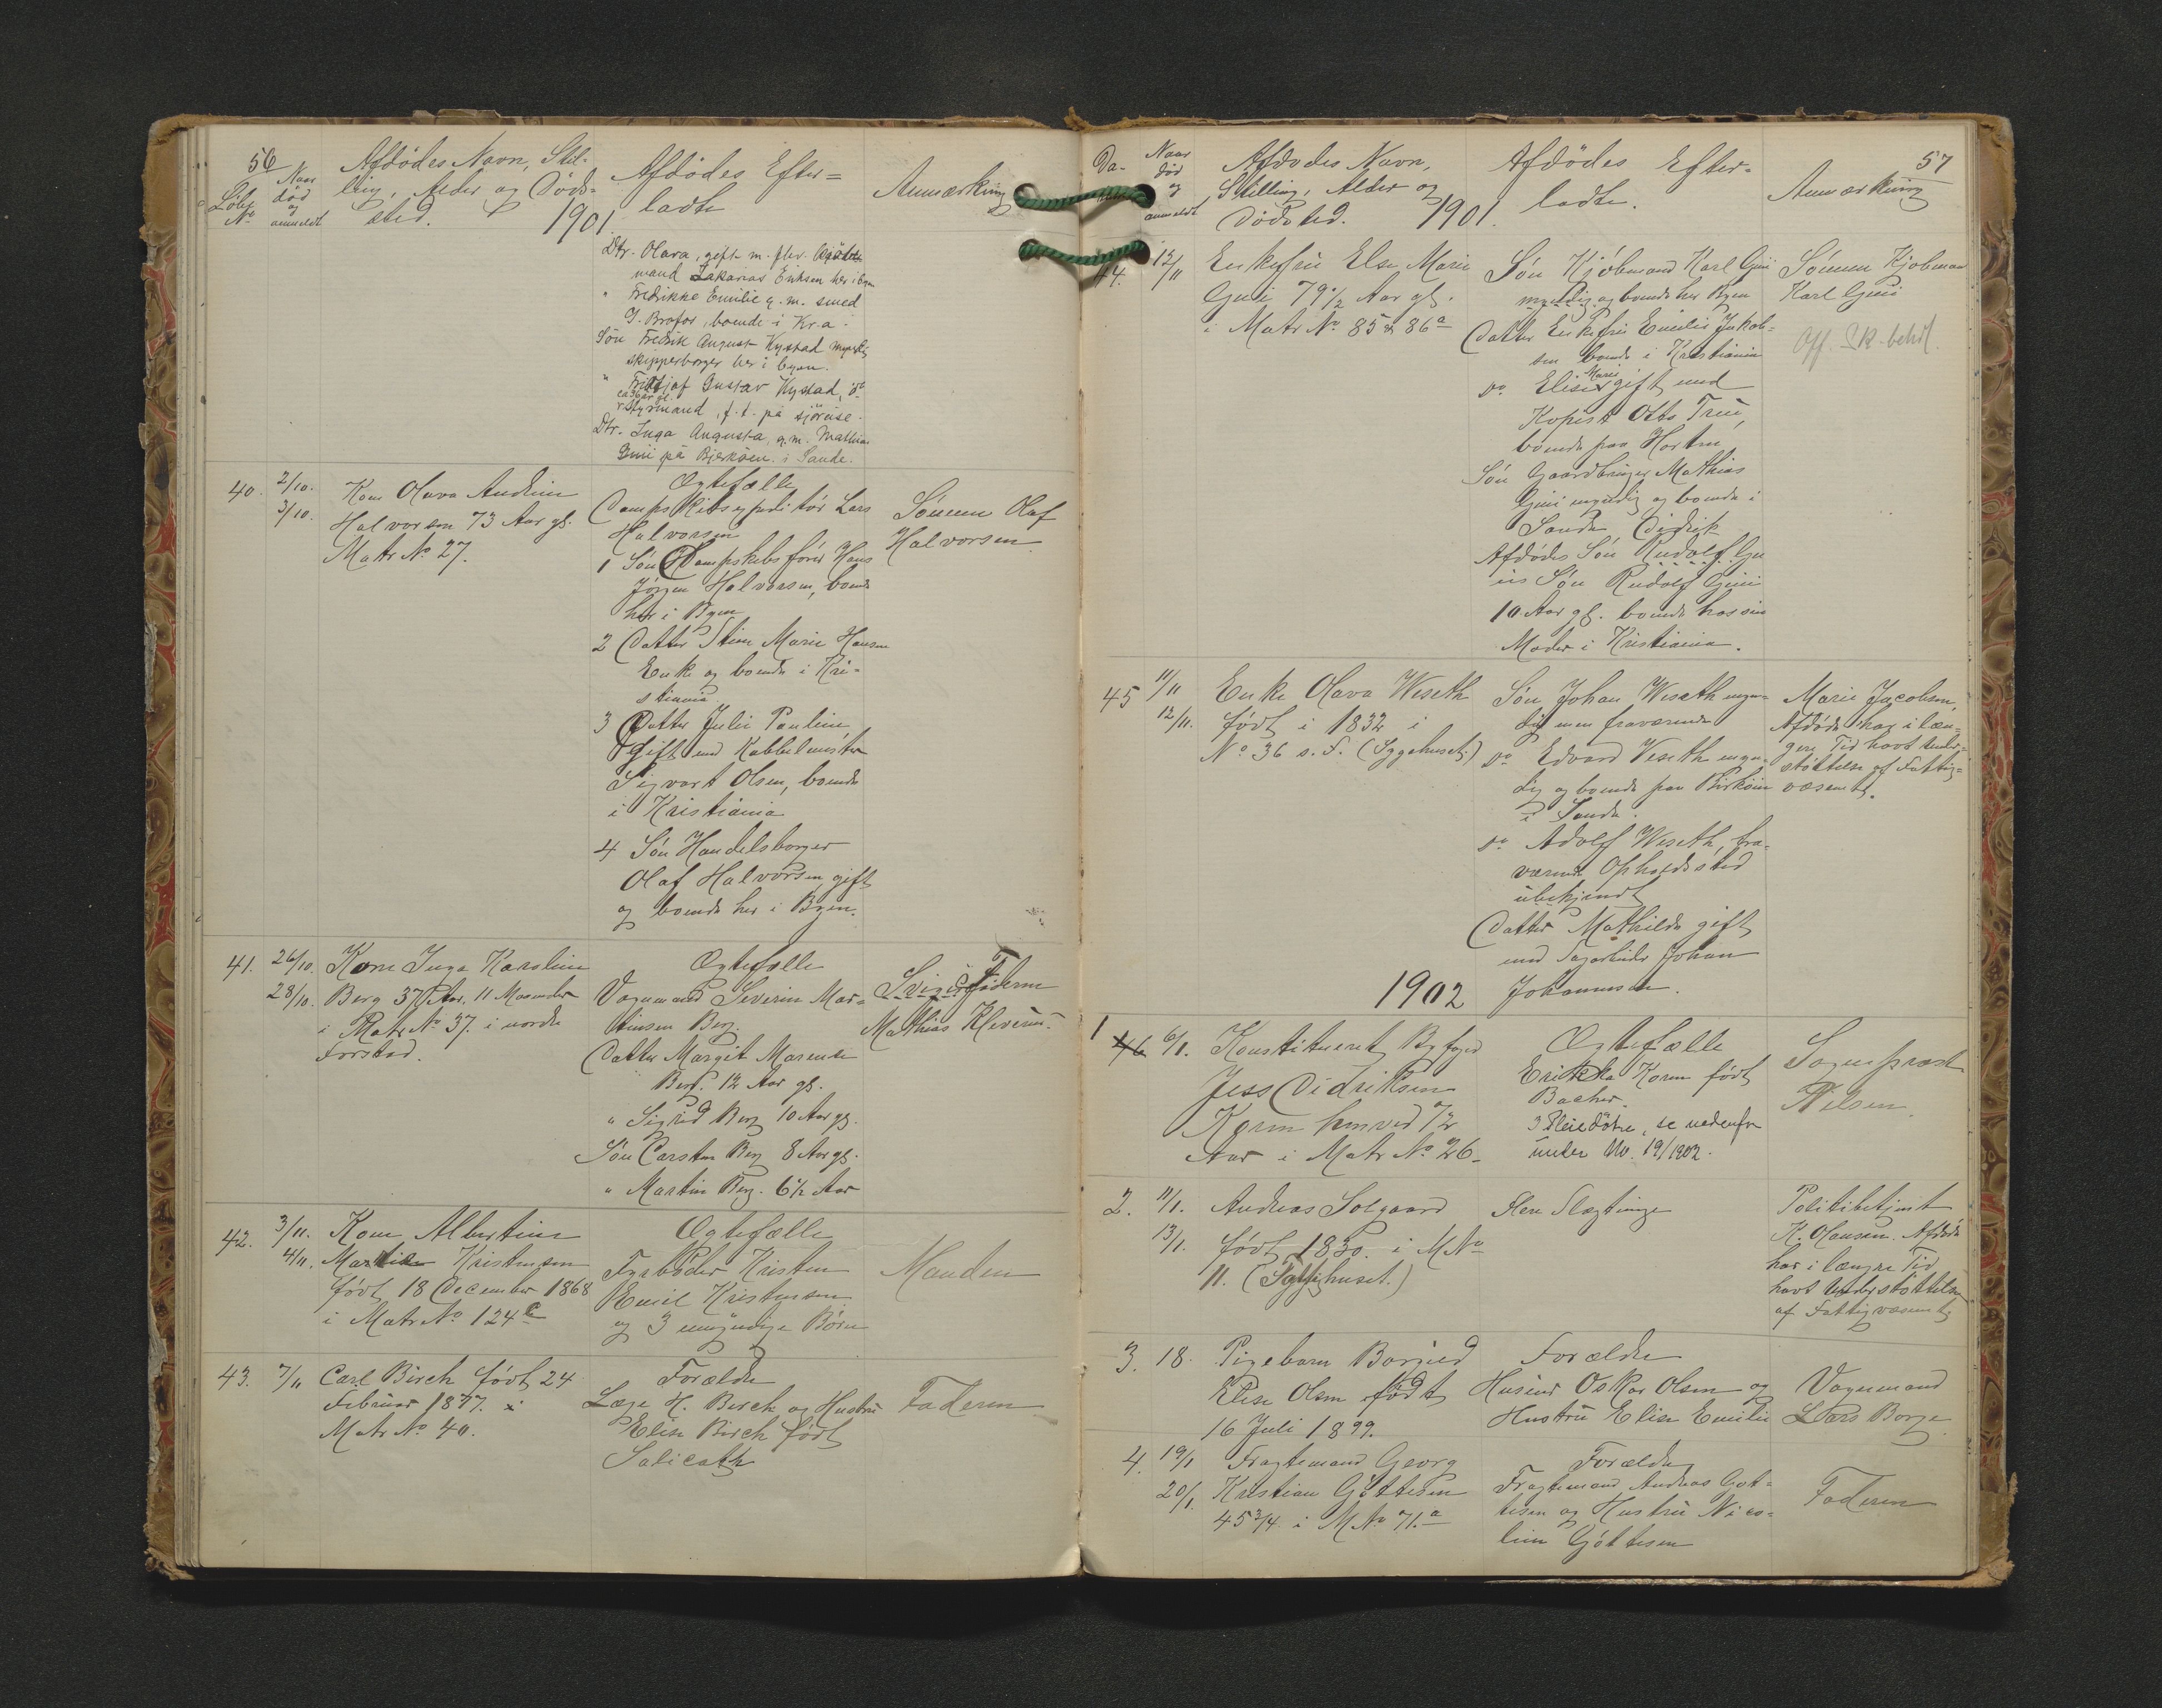 56
Løbe
No
Naar
død
og
anmeldt
Afdødes Navn, Stil-
ling, Alder og Døds-
sted.
1901
Afdødes Efter-
ladte
Anmærkning
Dtr. Olava, gift m. flv.
mand Zakarias Eriksen her i byen
" Fredrikke Emilie g. m. smed
G. Brofor, boende i Kr.a.
Søn Fredrik August Kystad myndig
skipperborger her i byen.
" Fridtjof Gustav Kystad, do
ca 36 år gl.
styrmand, f. t. på sjöreise.
Dtr. Inga Augusta, g. m. Mathias
Gui på Bjerköen i Sande.
40.
2/10.
3/10.
Kone Olava Andrine
Halvorsen 73 Aar gl.
Matr No 27.
Ægtefælle
Dampskibsexpeditør Lars
Halvorsen
1 Søn Dampskibsfører Hans
Jørgen Halvorsen, boende
her i Byen
2 Datter Stine Marie Hansen
Enke og boende i Kri-
stiania
3 Datter Julie Pauline,
gift med Kabbelmester
Sigvart Olsen, boende
i Kristiania
4 Søn Handelsborger
Olaf Halvorsen gift
og boende her i Byen.
Sønnen Olaf
Halvorsen.
41.
26/10.
28/10.
Kone Inga Karoline
Berg 37 Aar, 11 Maaneder
i Matr No 37. i nordre
Forstad.
Ægtefælle
Vognmand Severin Mar-
tinsen Berg.
Datter Margit Marense
Berg. 12 Aar gl.
" Sigrid Berg 10 Aar gl.
Søn Carsten Berg 8 Aar gl.
" Martin Berg. 6½ Aar
Svigerfaderen
Mathias Kleven.
42.
3/11.
4/11.
Kone Albertine
Kristensen
født 18 December 1868
i Matr No 124
Ægtefælle
Fyrbøder Kristen
Emil Kristensen
og 3 umyndige Børn
Manden
43.
7/11
Carl Birch født 24
Februar 1877. i
Matr No 40.
Forældre
Læge H. Birch og Hustru
Elise Birch født
Salicath
Faderen
57
Da-
Naar
død
og
anmeldt
Afdødes Navn,
Stilling, Alder og
Dødsted.
1901.
Afdødes Efter-
ladte.
Anmærkning
44.
12/11
Enkefru Else Marie
Gui 79½ Aar gl.
i Matr No 85 & 86a
Søn Kjøbmand Karl Gui
myndig og boende her Byen
Datter Enkefru Emilie Jakob-
sen boende i Kristiania
do Elise Marie gift med
Kopist
boende paa Horten
Søn Gaardbruger Mathias
Gui myndig og boende i
Sande
Didrik
Afdødes Søn Rudolf Gu-
is Søn Rudolf Gui
10 Aar gl. boende hos sin
Moder i Kristiania.
Sønnen Kjøbmand
Karl Gui
Off. Sk. behdl.
45
11/11
12/11.
Enke Olava Weseth
født i 1832 i
No 36 s. F. (Sygehuset)
Søn Johan Weseth myn-
dig men fraværende
do Edvard Weseth myn-
dig og boende paa Birköen
i Sande.
do Adolf Weseth, fra-
værende Opholdssted
ubekjendt
Datter Mathilde gift
med Sagarbeider Johan
Johannesen.
Marie Jacobsen,
Afdøde har i læn-
gere Tid havt under-
støttelse af Fattig-
væsenet.
1902
1
46
6/1.
Konstitueret Byfoged
Jess Didriksen
Koren henved 72
Aar i Matr No 26.
Ægtefælle
Erikka Koren født
Bacher.
3 Pleiedötre, se nedenfor
under No. 19/1902.
Sogneprest
Nilsen.
2.
11/1.
13/1.
Andreas Solgaard
født 1830. i M No
11. (Fattighuset.)
Flere Slægtninge
Politibetjent
K. Olausen. Afdøde
har i længre Tid
havt Understøttelse
af Fattigvæsenet
3.
18.
Pigebarn Borgild
Elise Olsen født
16 Juli 1899.
Forældre
Huseier Oskar Olsen og
Hustru Elise Emilie
Vognmand
Lars Borge
4.
19/1
20/1.
Fragtemand Georg
Kristian Gøttesen
45 3/4 i M No 71.a
Forældre
Fragtemand Andreas Gøt-
tesen og Hustru Nico-
line Gøttesen
Faderen